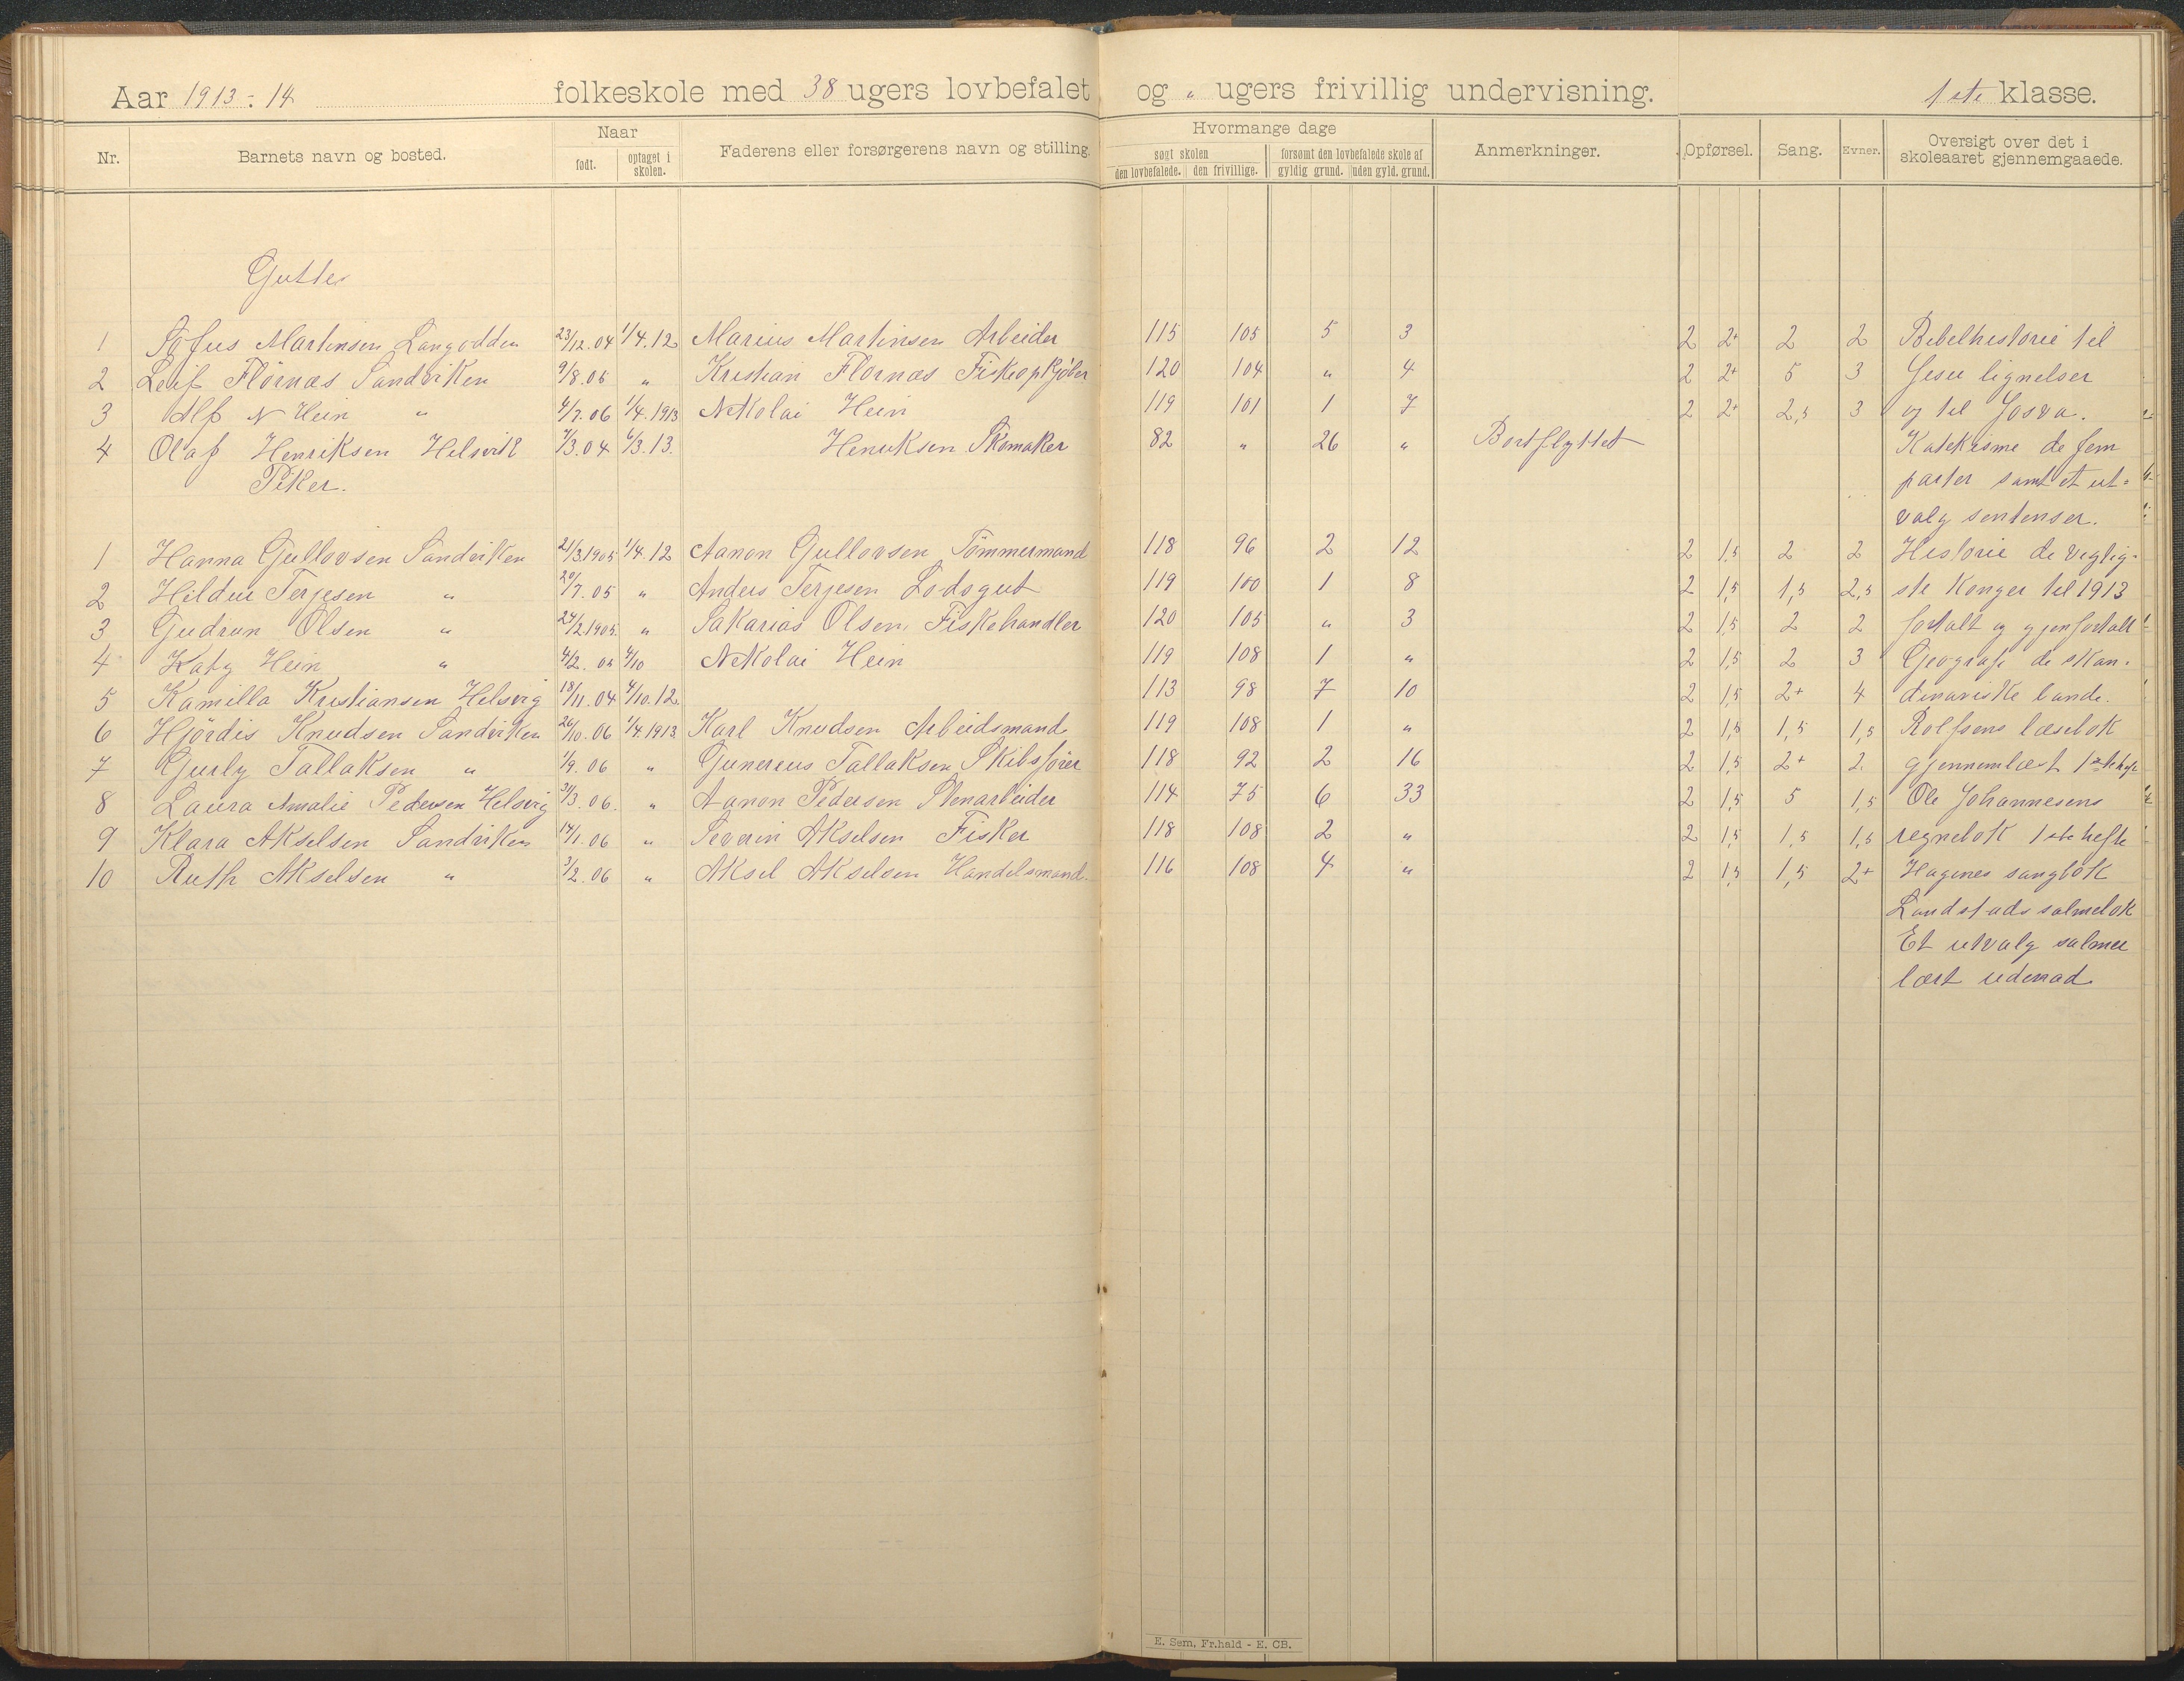 Aar 1913-14 folkeskole med 38 ugers lovbefalet og " ugers frivillig undervisning. 1ste klasse.
Nr. Barnets navn og bosted. Naar født. optaget i skolen. Faderens eller forsørgerens navn og stilling. Hvormange dage søgt skolen den lovbefalede. den frivillige. forsømt den lovbefalede skole af gyldig grund. uden gyld. grund. Anmerkninger. Opførsel. Sang. Evner. Oversigt over det i skoleaaret gjennemgaaede.
Gutter
1 Sofus Martinsen Langodden 23/12.04 1/4.12 Marius Martinsen Arbeider 115 105 5 3 2 2+ 2 2 Bibelhistorie til
2 Leif Flörnæs Sandviken 9/8.05 " Kristian Flörnæs Fiskeopkjöber 120 104 " 4 2 2+ 5 3 Jesu lignelser
3 Alf N Hein " 4/7.06 1/4.1913 Nikolai Hein 119 101 1 7 2 2+ 2,5 3 og til Josva.
4 Olaf Henriksen Helsvik 7/3.04 6/3.13. Henriksen Skomaker 82 " 26 " Bortflyttet Katekisme de fem
Piker. parter samt et ut-
valg sentenser.
1 Hanna Gullovsen Sandviken 21/3.1905 1/4.12 Aanon Gullovsen Tömmermand 118 96 2 12 2 1,5 2 2 Historie de vigtig-
2 Hildur Terjesen " 20/7.05 " Anders Terjesen Lodsgut 119 100 1 8 2 1,5 1,5 2,5 ste konger til 1913
3 Gudrun Olsen " 24/2.1905. " Sakarias Olsen, Fiskehandler 120 105 " 3 2 1,5 2 2 fortalt og gjenfortalt
4 Katy Hein " 4/2.05 4/10 Nikolai Hein 119 108 1 " 2 1,5 2 3 Geografi de skan-
5 Kamilla Kristiansen Helsvig 18/11.04 4/10.12. 113 98 7 10 2 1,5 2+ 4 dinaviske lande.
6 Hjördis Knudsen Sandviken 26/10.06 1/4.1913 Karl Knudsen Arbeidsmand 119 108 1 " 2 1,5 1,5 1,5 Rolfsens læsebok
7 Gurly Tallaksen " 1/9.06 " Gunerius Tallaksen Skibsförer 118 92 2 16 2 1,5 2+ 2 gjennemlæst 1ste hefte
8 Laura Amalie Pedersen Helsvig 31/3.06. " Aanon Pedersen Stenarbeider 114 75 6 33 2 1,5 5 1,5 Ole Johannesens
9 Klara Akselsen Sandviken 14/1.06 " Severin Akselsen Fisker 118 108 2 " 2 1,5 1,5 1,5 regnebok 1ste hefte
10 Ruth Akselsen " 3/2.06 " Aksel Akselsen Handelsmand. 116 108 4 " 2 1,5 1,5 2+ Hagenes sangbok
Landstads salmebok
Et utvalg salmer
lært udenad.
E. Sem, Fr.hald - E. CB.